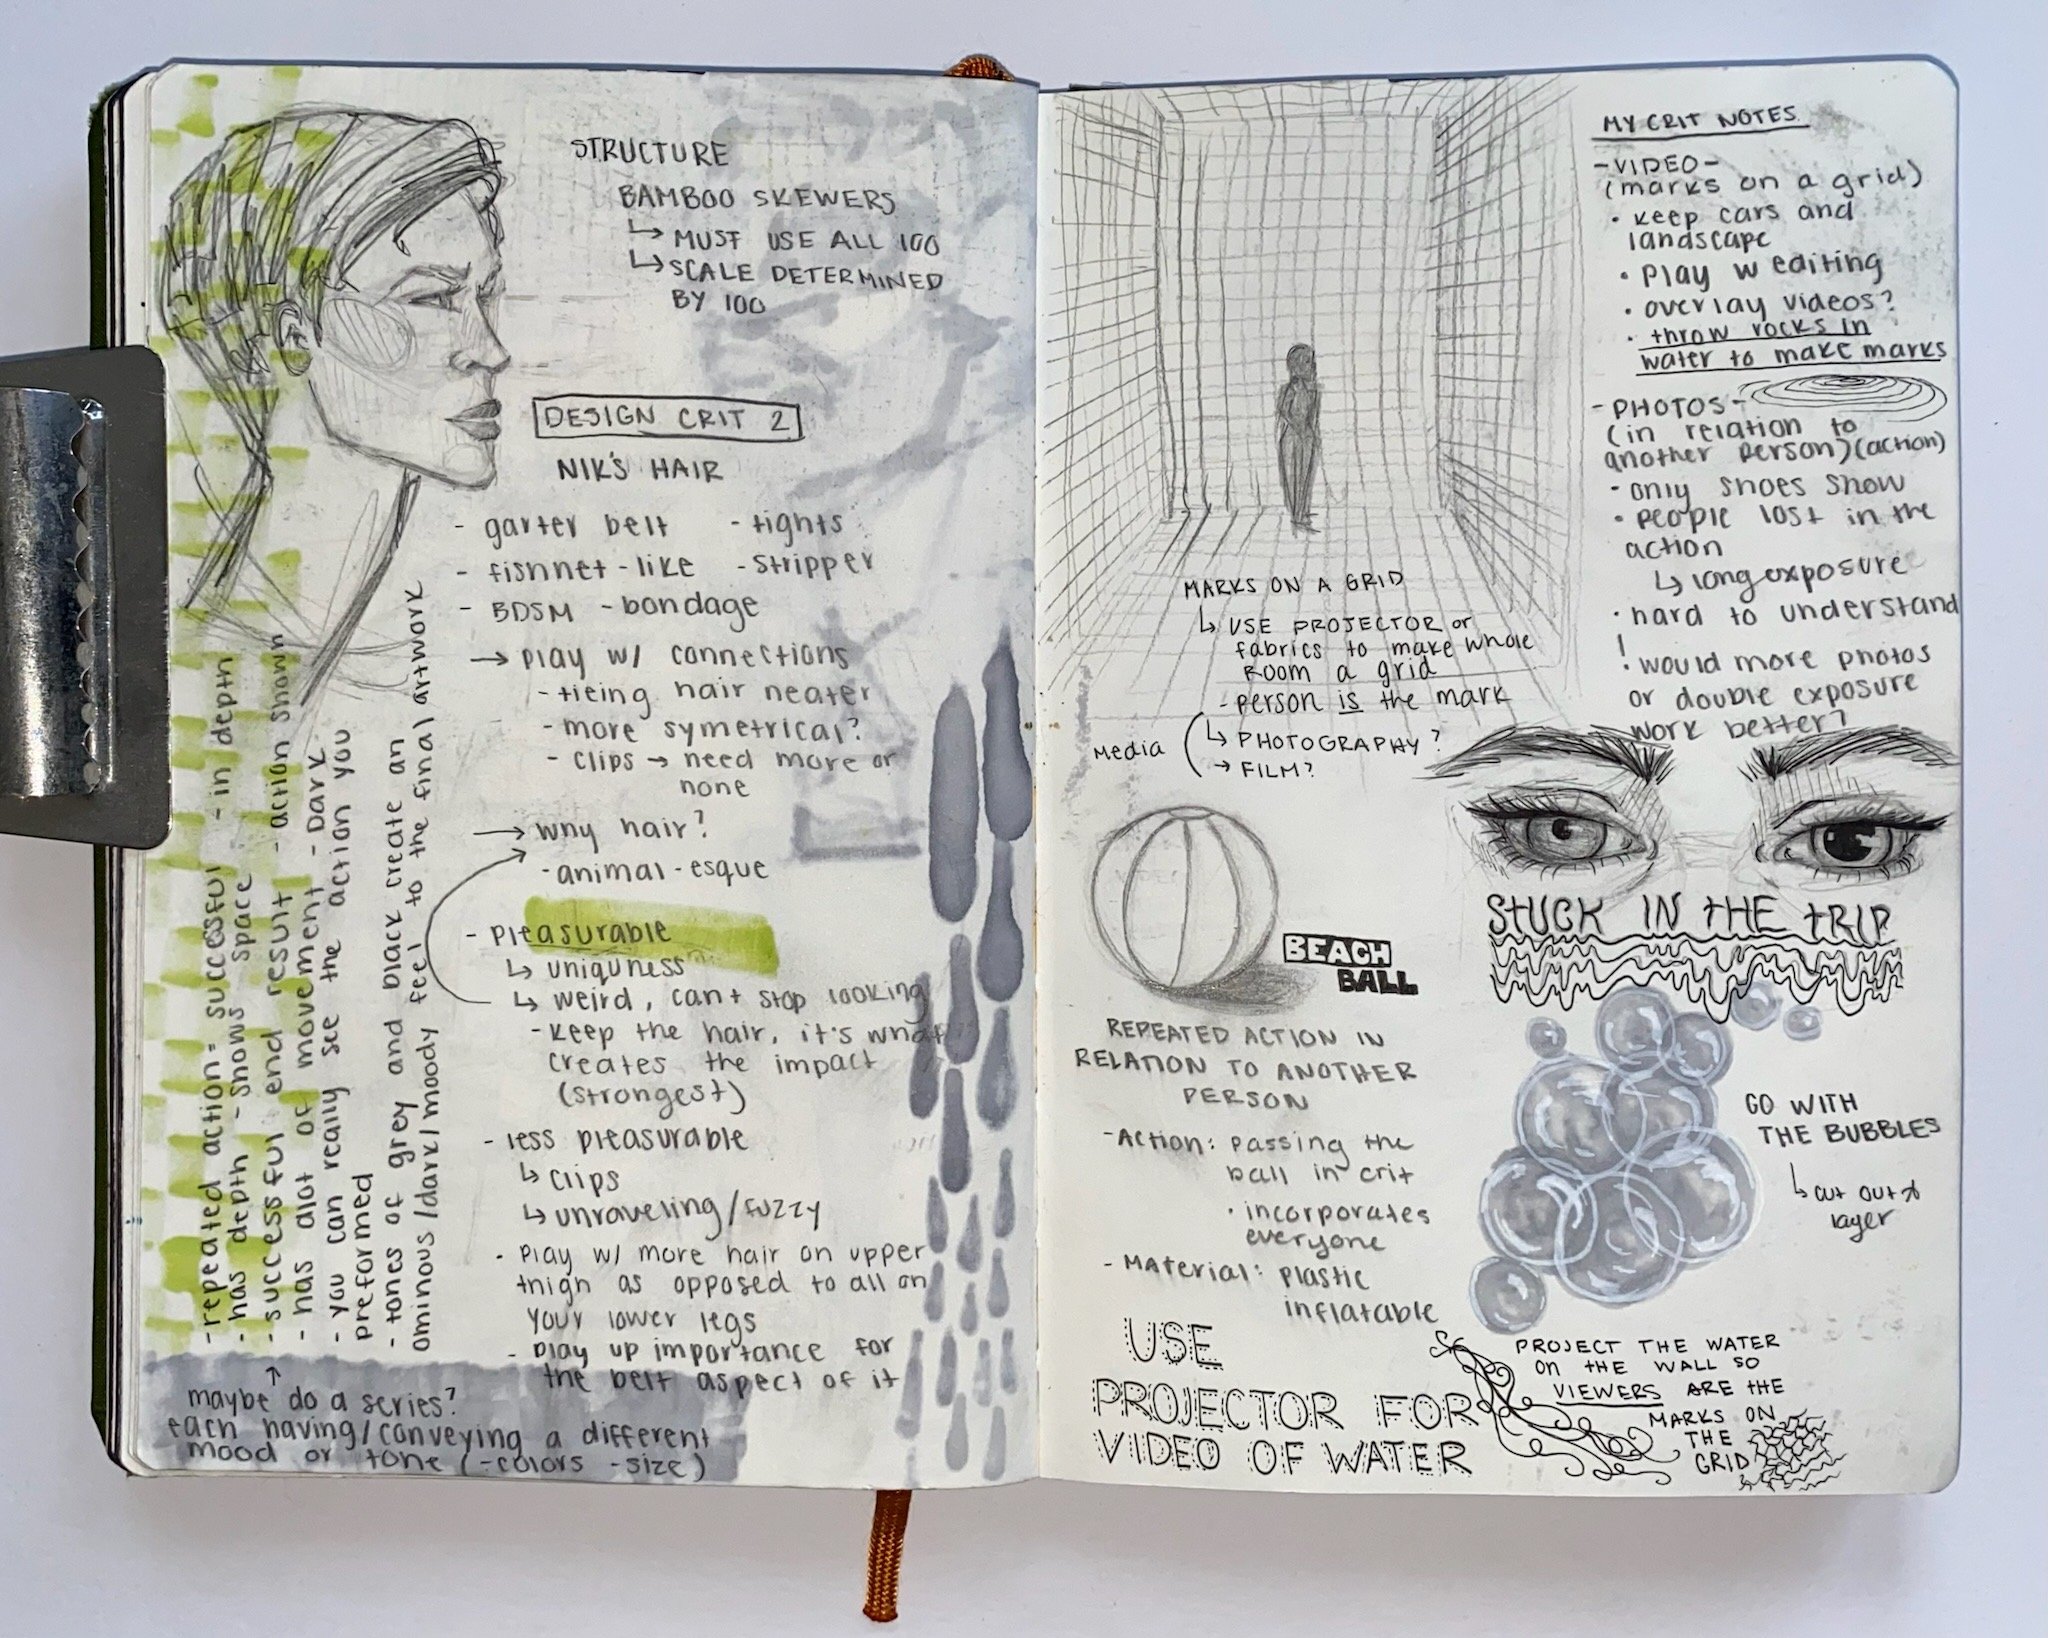 STRUCTURE
BAMBOO SKEWERS
↳ MUST USE ALL 100
↳ SCALE DETERMINED
BY 100
DESIGN CRIT 2
NIK'S HAIR
- garter belt - tights
- fishnet-like - stripper
- BDSM - bondage
→ play w/ connections
- tieing hair neater
- more symetrical?
- clips → need more or
none
→ why hair?
- animal-esque
- pleasurable
↳ uniquness
↳ weird, can't stop looking
- keep the hair, it's what
creates the impact
(strongest)
- less pleasurable
↳ clips
↳ unraveling/fuzzy
- play w/ more hair on upper
thigh as opposed to all on
your lower legs
- play up importance for
the belt aspect of it
- repeated action = successful - in depth
- has depth - shows space
- successful end result - action shown
- has alot of movement - Dark
- you can really see the action you
preformed
- tones of grey and black create an
ominous/dark/moody feel to the final artwork
maybe do a series?
each having/conveying a different
mood or tone (-colors -size)
MARKS ON A GRID
↳ USE PROJECTOR or
fabrics to make whole
ROOM a grid
- person is the mark
Media
↳ PHOTOGRAPHY?
→ FILM?
BEACH
BALL
REPEATED ACTION IN
RELATION TO ANOTHER
PERSON
- Action: passing the
ball in crit
· incorporates
everyone
- Material: plastic
inflatable
USE
PROJECTOR FOR
VIDEO OF WATER
MY CRIT NOTES
- VIDEO -
(marks on a grid)
· keep cars and
landscape
· play w editing
· overlay videos?
· throw rocks in
water to make marks
- PHOTOS -
(in relation to
another person)(action)
· only shoes show
· people lost in the
action
↳ long exposure
· hard to understand
! would more photos
or double exposure
work better?
STUCK IN THE TRIP
GO WITH
THE BUBBLES
↳ cut out &
layer
PROJECT THE WATER
ON THE WALL SO
VIEWERS ARE THE
MARKS ON
THE
GRID